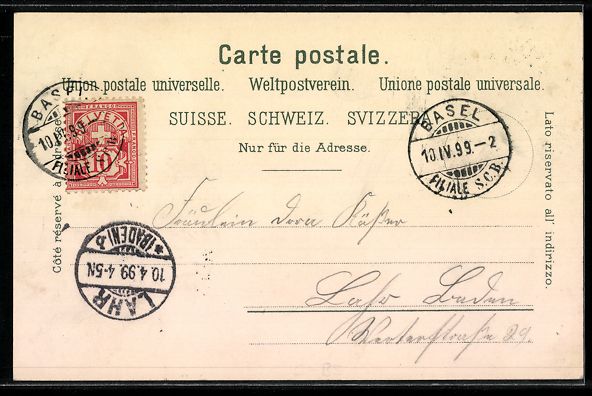 Carte postale.
Union postale universelle. Weltpostverein. Unione postale universale.
SUISSE. SCHWEIZ. SVIZZERA
Nur für die Adresse.
Côté réservé à l'adresse.
Lato riservato all' indirizzo.
FRANCO
HELVETIA
10
BASEL
10.IV.99
FILIALE
BASEL
10.IV.99.-2
FILIALE S.C.B.
LAHR
10.4.99.4-5N
* (BADEN) b
Fräulein Dora Käßer
Lahr Baden
Werderstraße 29.